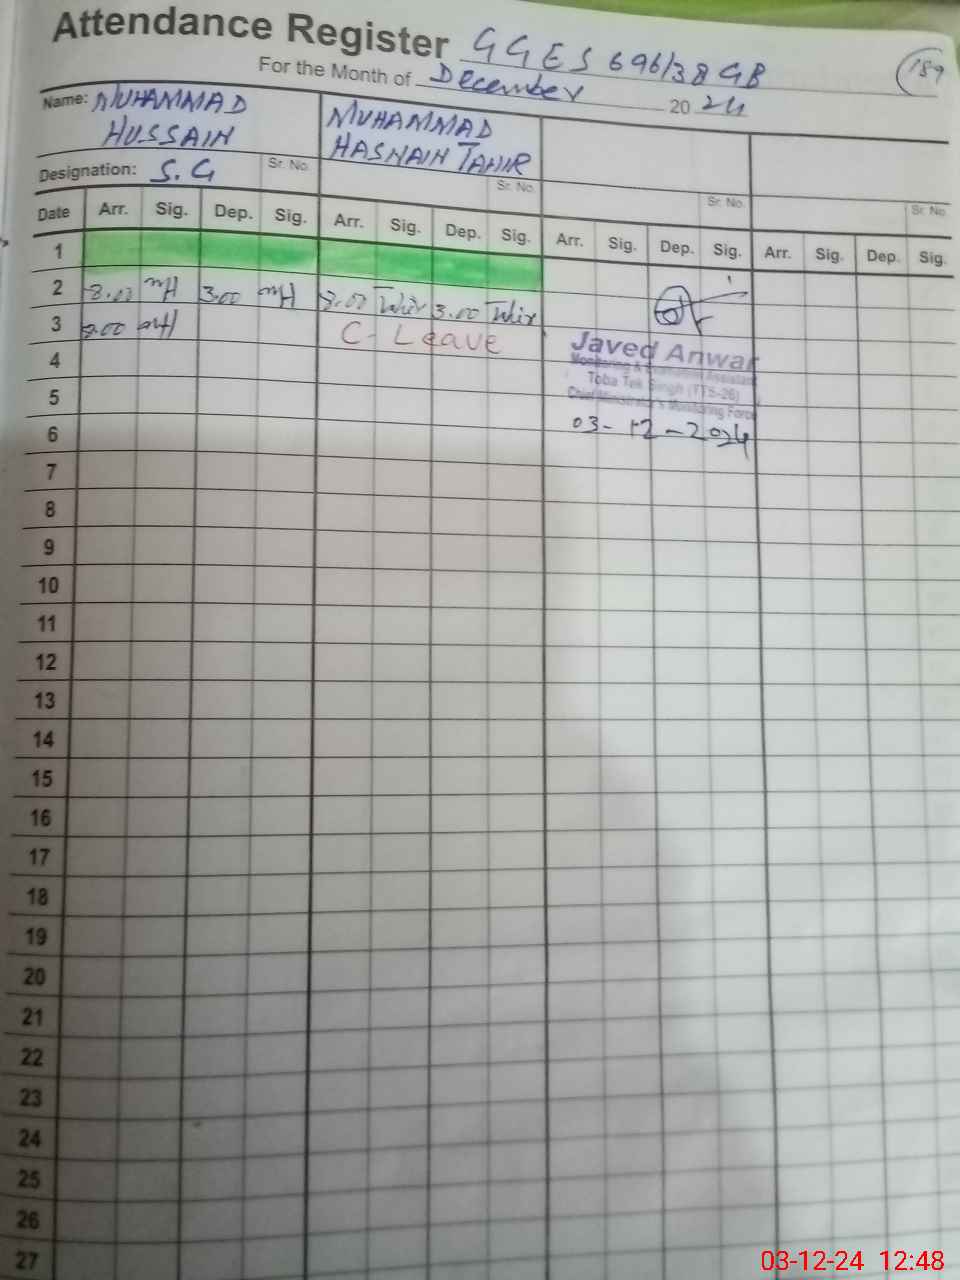 Attendance Register GGES 696/38 GB
189
For the Month of December 2024
Name: MUHAMMAD HUSSAIN
MUHAMMAD HASNAIN TAHIR
Designation: S.G
Sr. No. Sr. No. Sr. No. Sr. No.
Date Arr. Sig. Dep. Sig. Arr. Sig. Dep. Sig. Arr. Sig. Dep. Sig. Arr. Sig. Dep. Sig.
1
2 8.00 mH 3.00 mH 8.00 3.00
3 8.00 mH C-Leave
Javed Anwar
Monitoring & Evaluation Assistant
Toba Tek Singh (TTS-26)
Chief Minister's Monitoring Force
03-12-2024
4
5
6
7
8
9
10
11
12
13
14
15
16
17
18
19
20
21
22
23
24
25
26
27
03-12-24 12:48